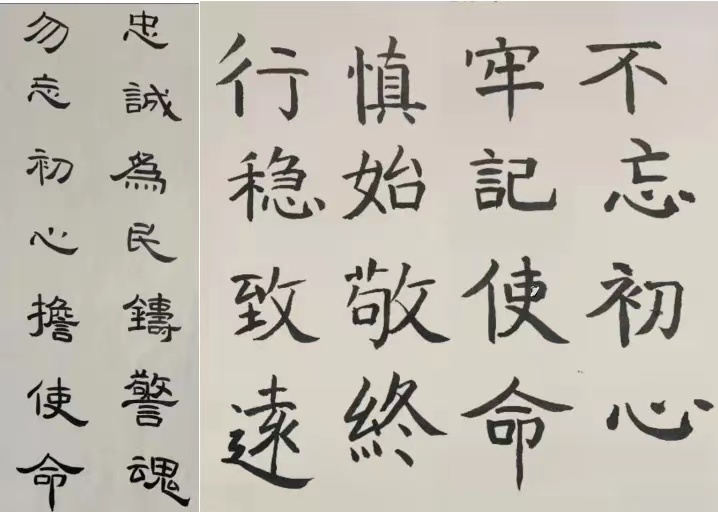 忠誠為民鑄警魂
勿忘初心擔使命
不忘初心
牢記使命
慎始敬終
行稳致遠